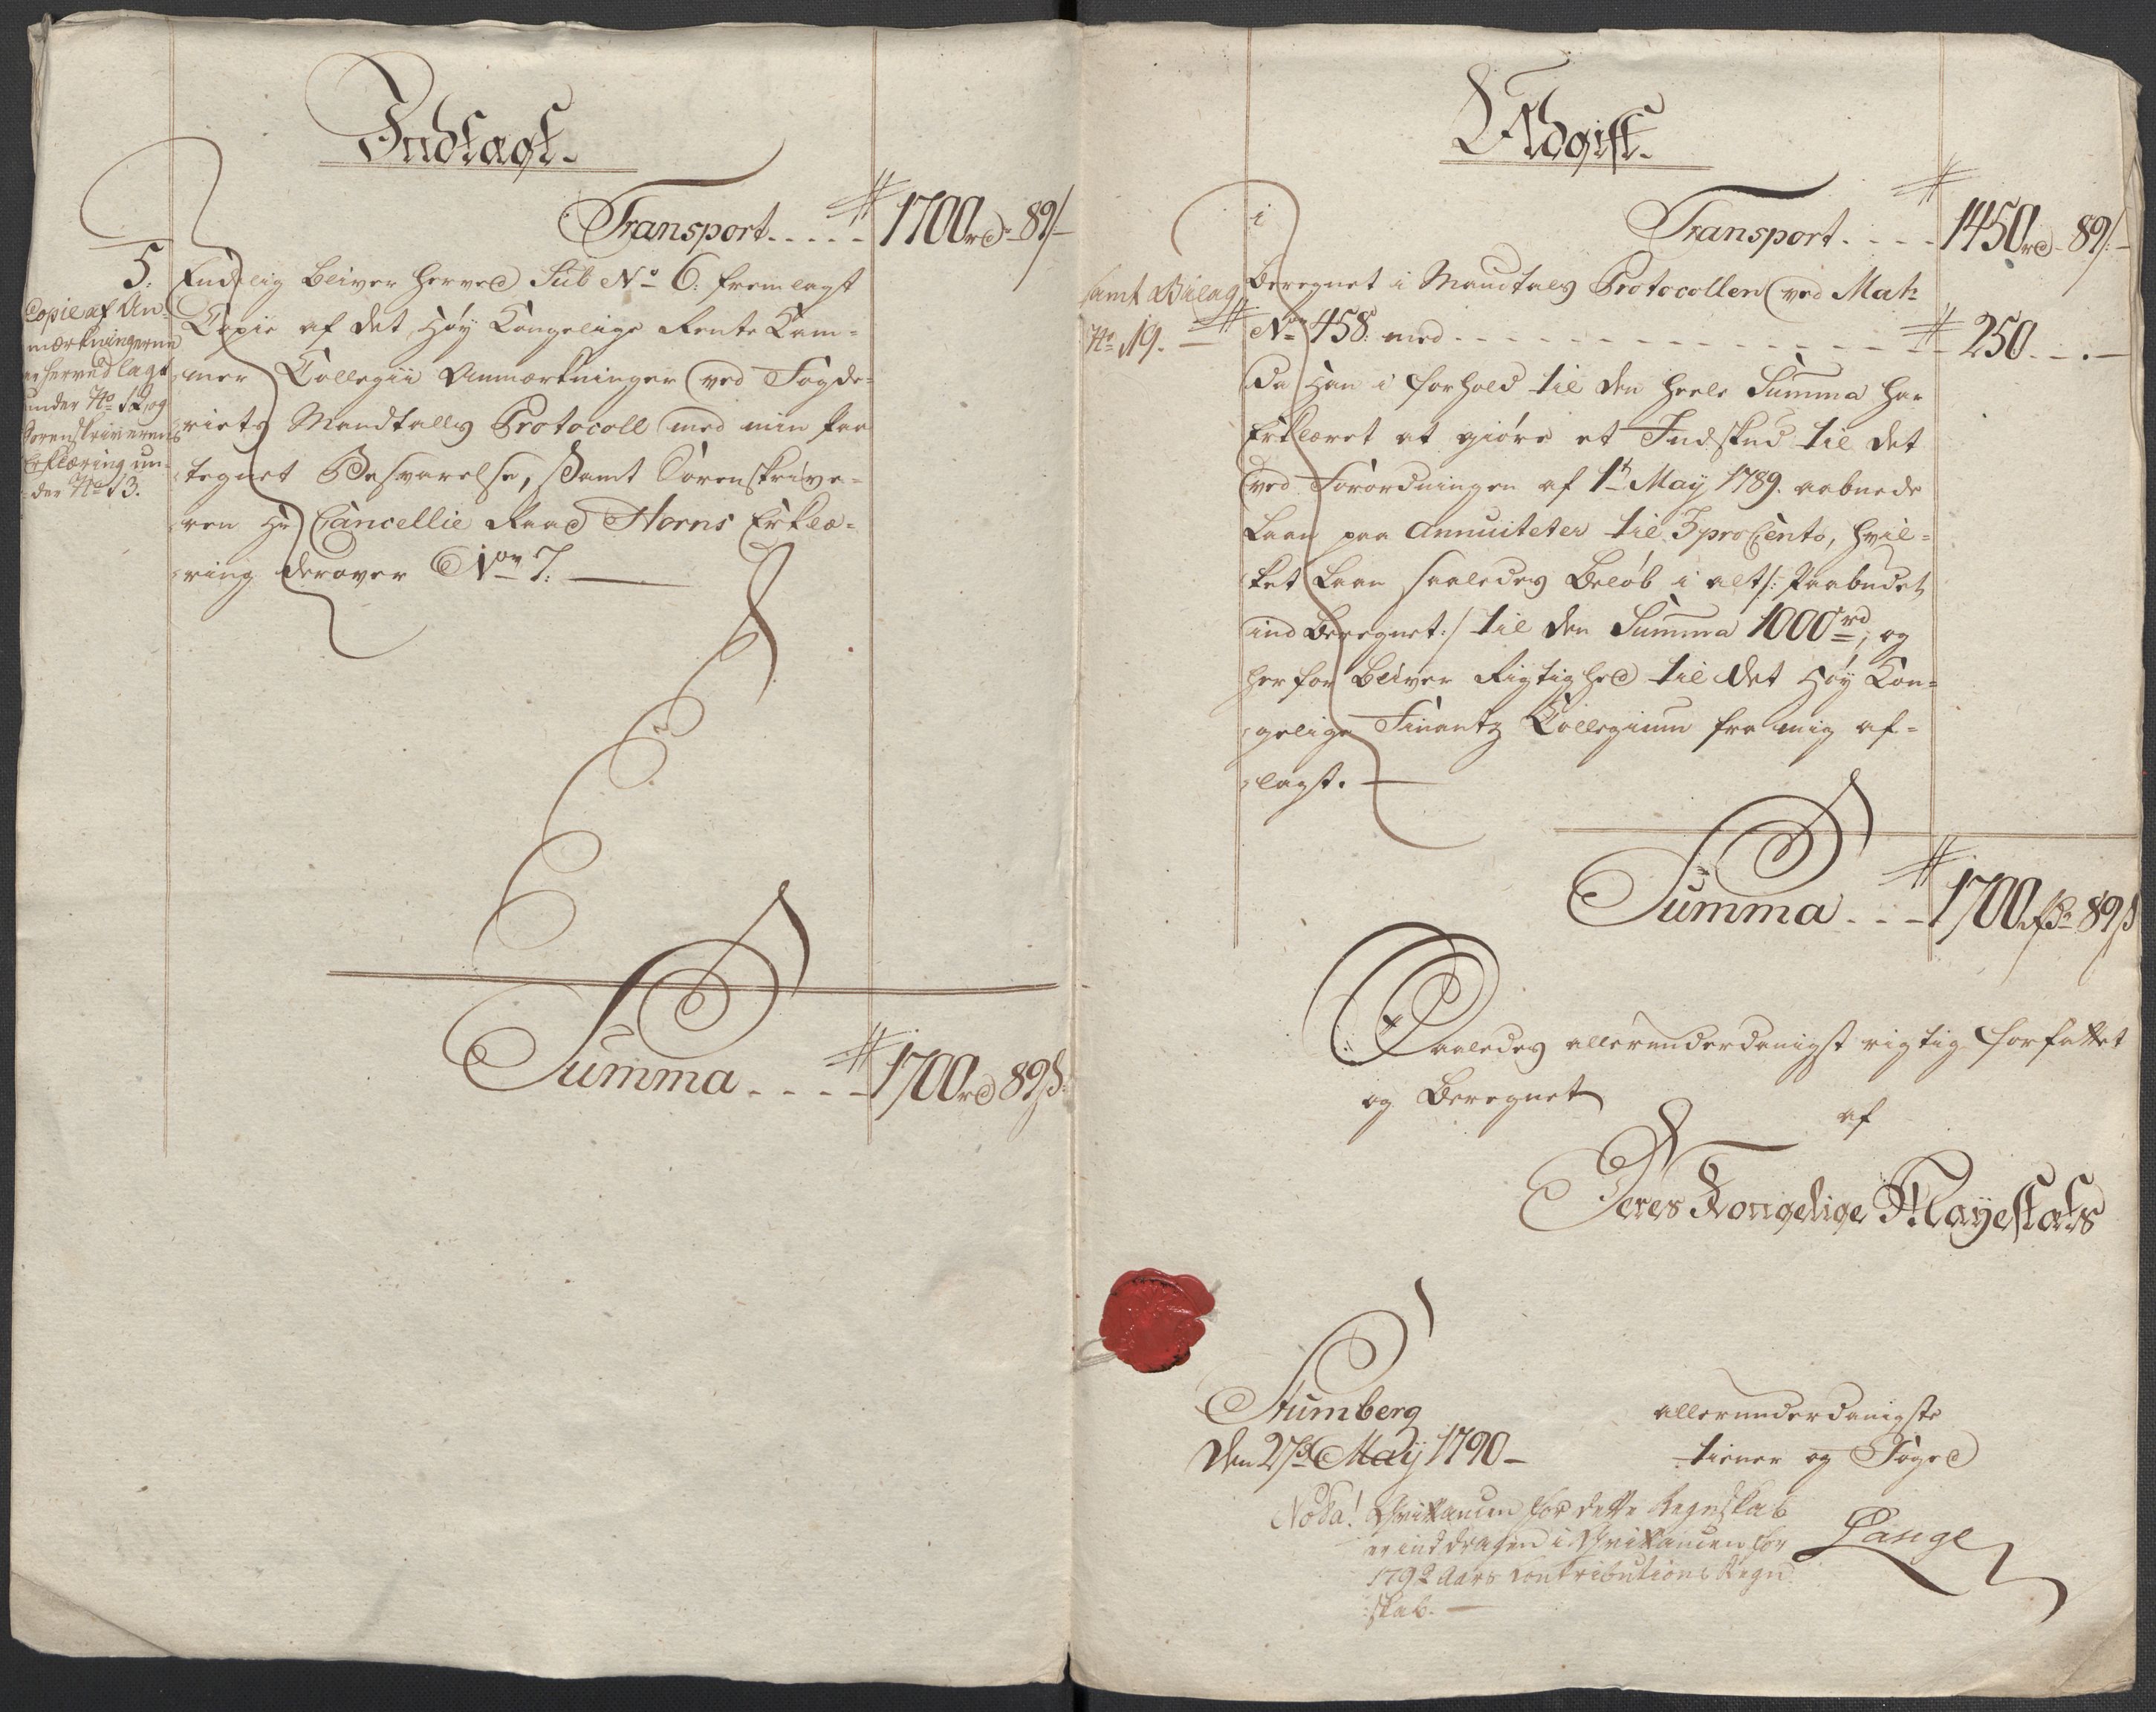 Indtægt.
Transport..... 1700rd 89ß
5. Endelig bliver herved Sub No 6: fremlagt
Copie af det Høy Kongelige Rente Kam-
mer Collegii Anmærkninger ved Fogde-
riets Mandtalls Protocoll med min paa
tegnet Besvarelse, samt Sorenskrive-
ren Hr Cancellie Raad Horns Erklæ-
ring derover Nor 7.
Copie af An-
mærkningerne
er herved lagt
under No 12, og
Sorenskriverens
Erklæring un-
der No 13.
Summa.... 1700rd 89ß:
Udgift.
Transport.... 1450rd 89ß
samt Bilag
No 19.
beregnet i Mandtals Protocollen ved Matr
No 458. med 250 . -
Da Han i forhold til den heele Summa har
Erklæret at giøre et Indskud til det
ved Forordningen af 1te May 1789. aabnede
Laan paa Annuiteter til 5 pro Cento, hvil-
ket Laan saaledes Beløb i alt /: Paabudet
ind beregnet :/ til den Summa 1000rd; og
herfor bliver Rigtighed til det Høy Kon-
gelige Finantz Collegium fra mig af-
lagt.
Summa... 1700 89ß
Saaledes allerunderdanigst rigtig forfattet
og Beregnet
af
Deres Kongelige Mayestæts
Stumberg
Den 27de May 1790
allerunderdanigste
tiener og Foged
Lange
Nota! Qvittancen for dette Regnskab
er inddragen i Qvittancen for
1792 Aars Contributions Regn
skab.